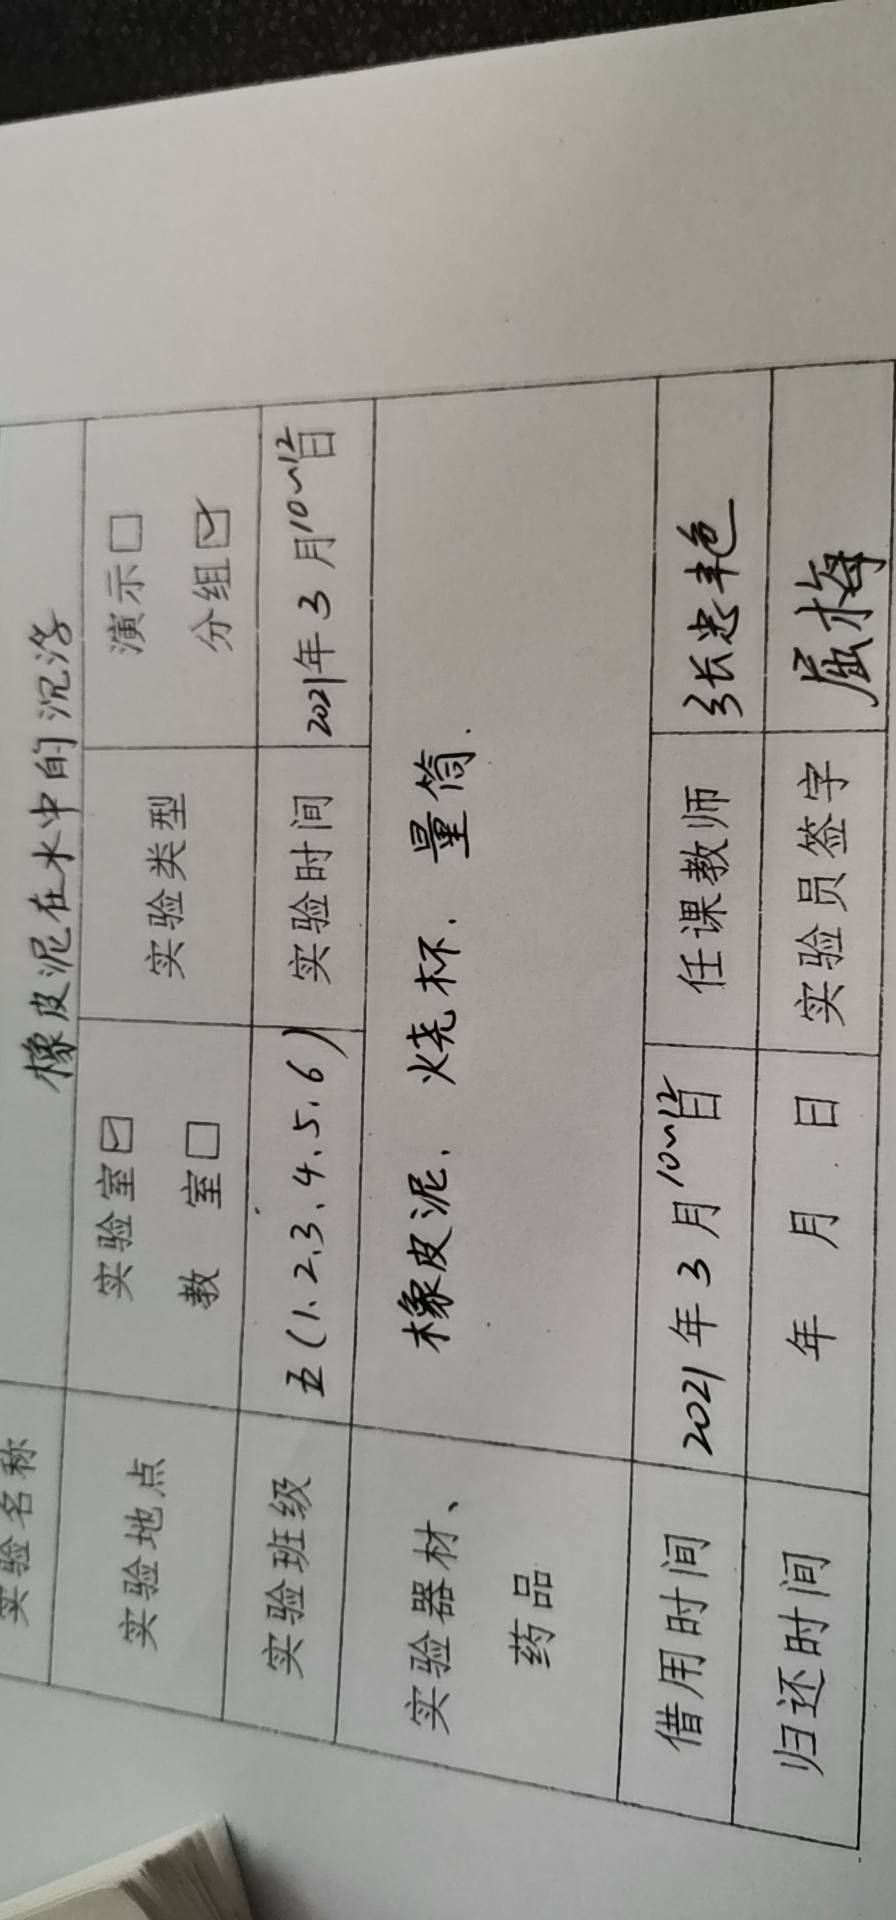 实验名称 橡皮泥在水中的沉浮
实验地点 实验室☑ 实验类型 演示□
教 室□ 分组☑
实验班级 五(1、2、3、4、5、6) 实验时间 2021年3月10~12日
实验器材、 橡皮泥、烧杯、量筒.
药品
借用时间 2021年3月10~12日 任课教师 张忠艳
归还时间 年 月 日 实验员签字 屈梅